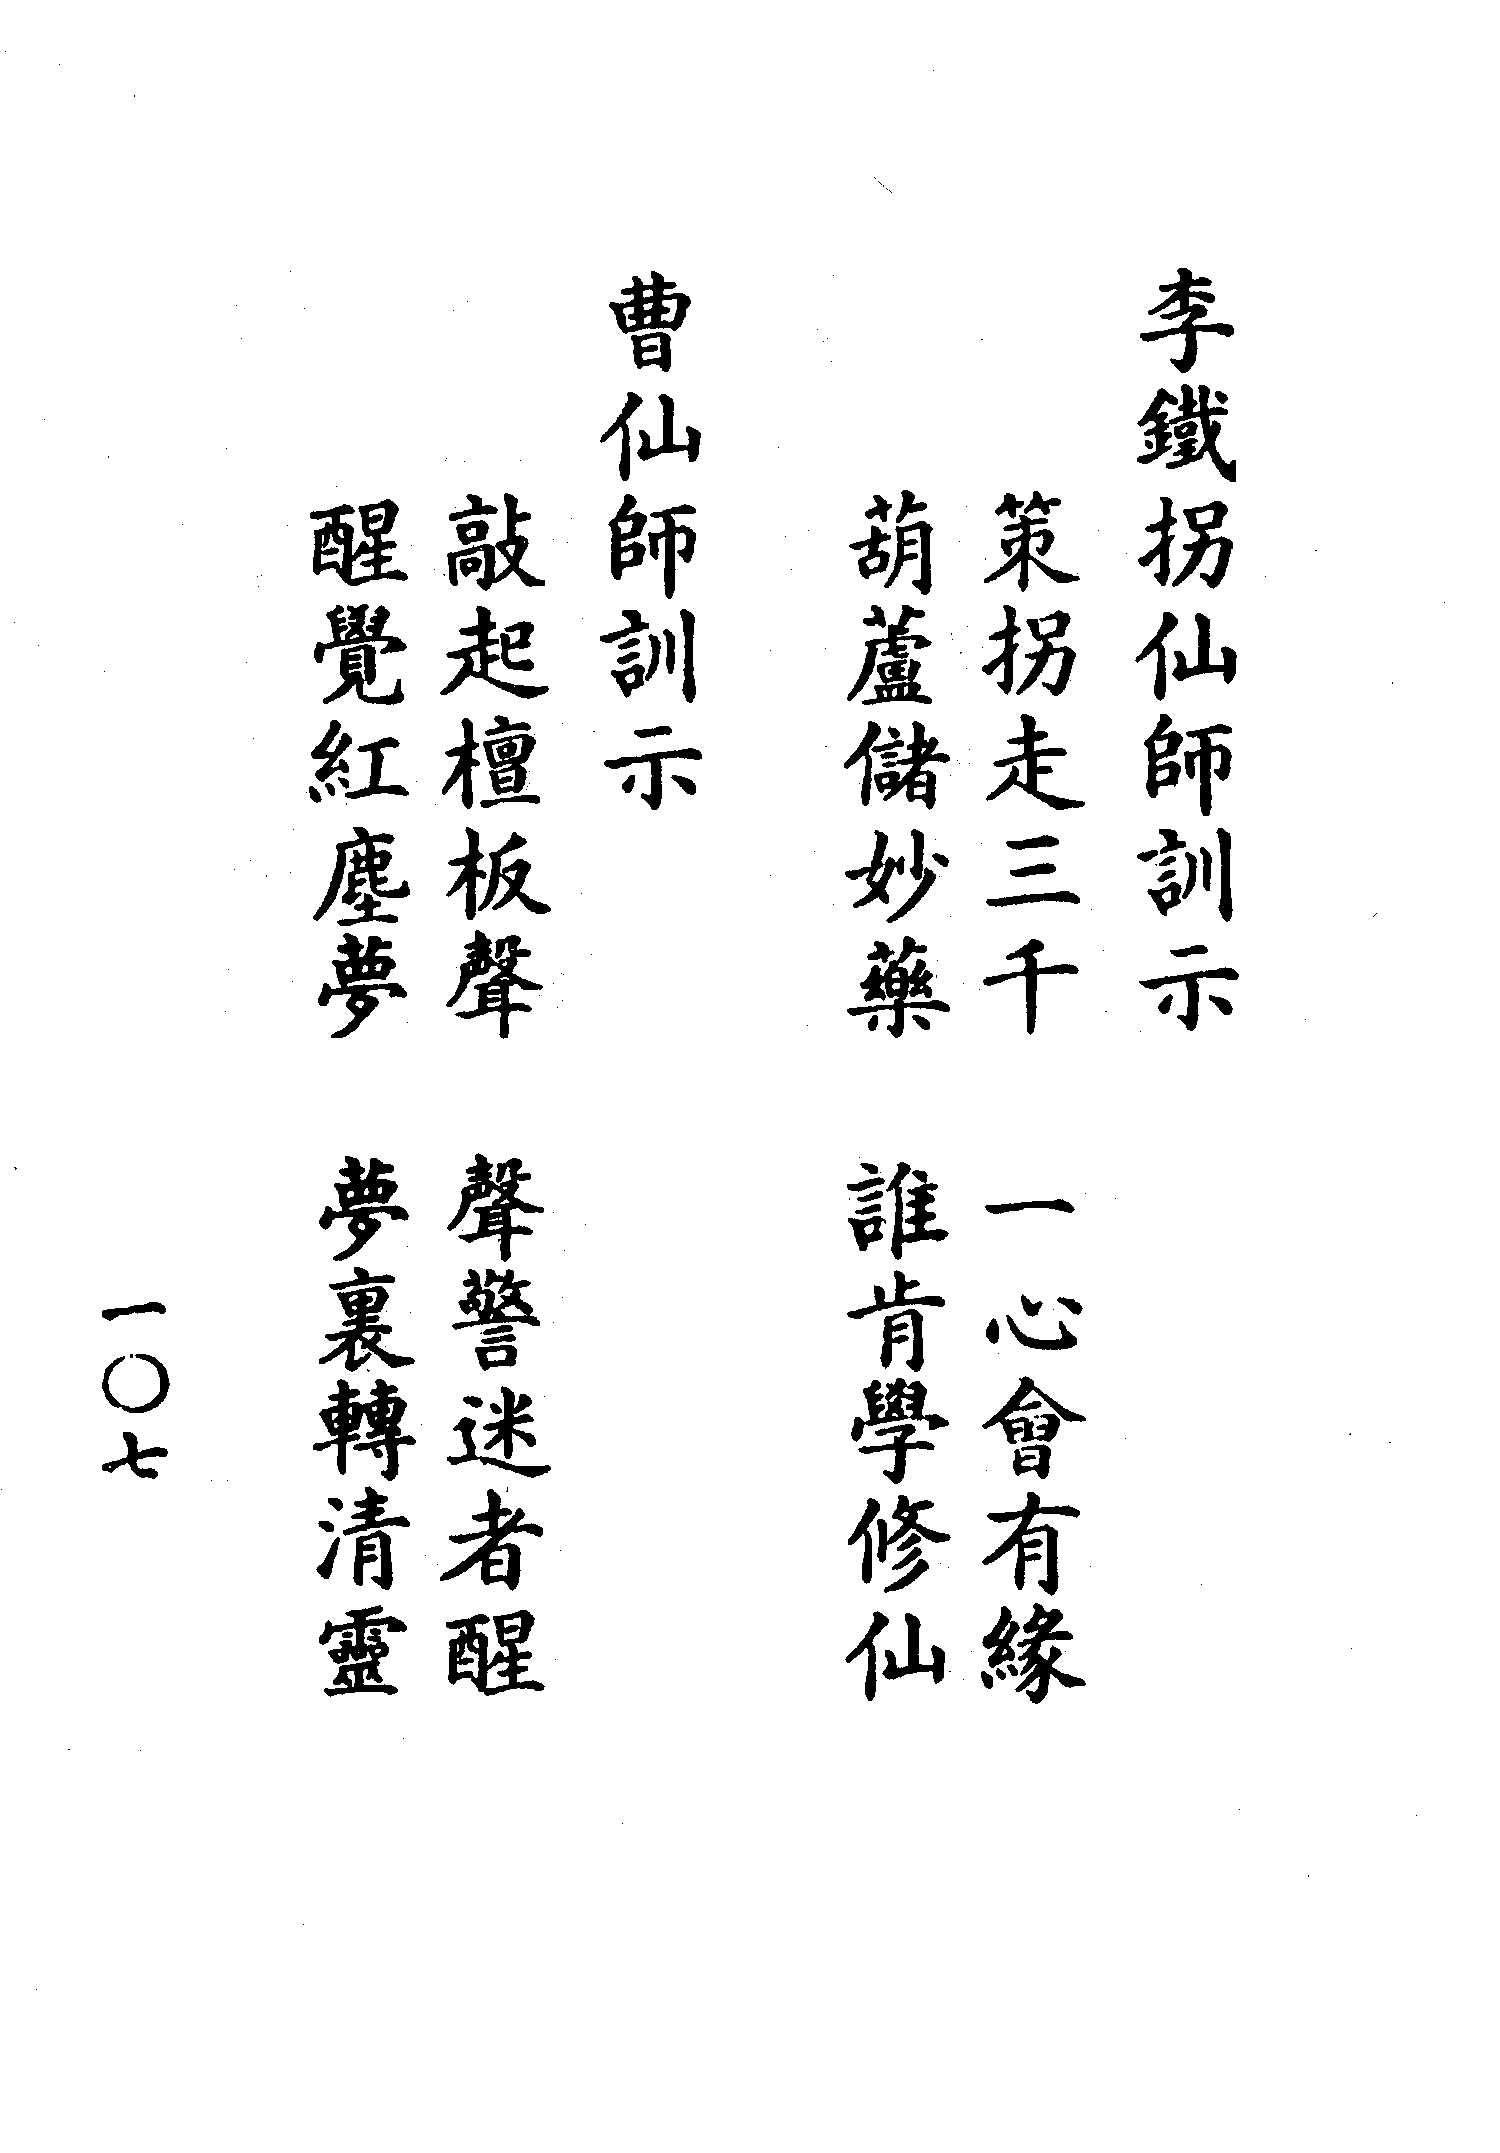 李鐵拐仙師訓示
策拐走三千　一心會有緣
葫蘆儲妙藥　誰肯學修仙
曹仙師訓示
敲起檀板聲　聲警迷者醒
醒覺紅塵夢　夢裏轉清靈
一〇七